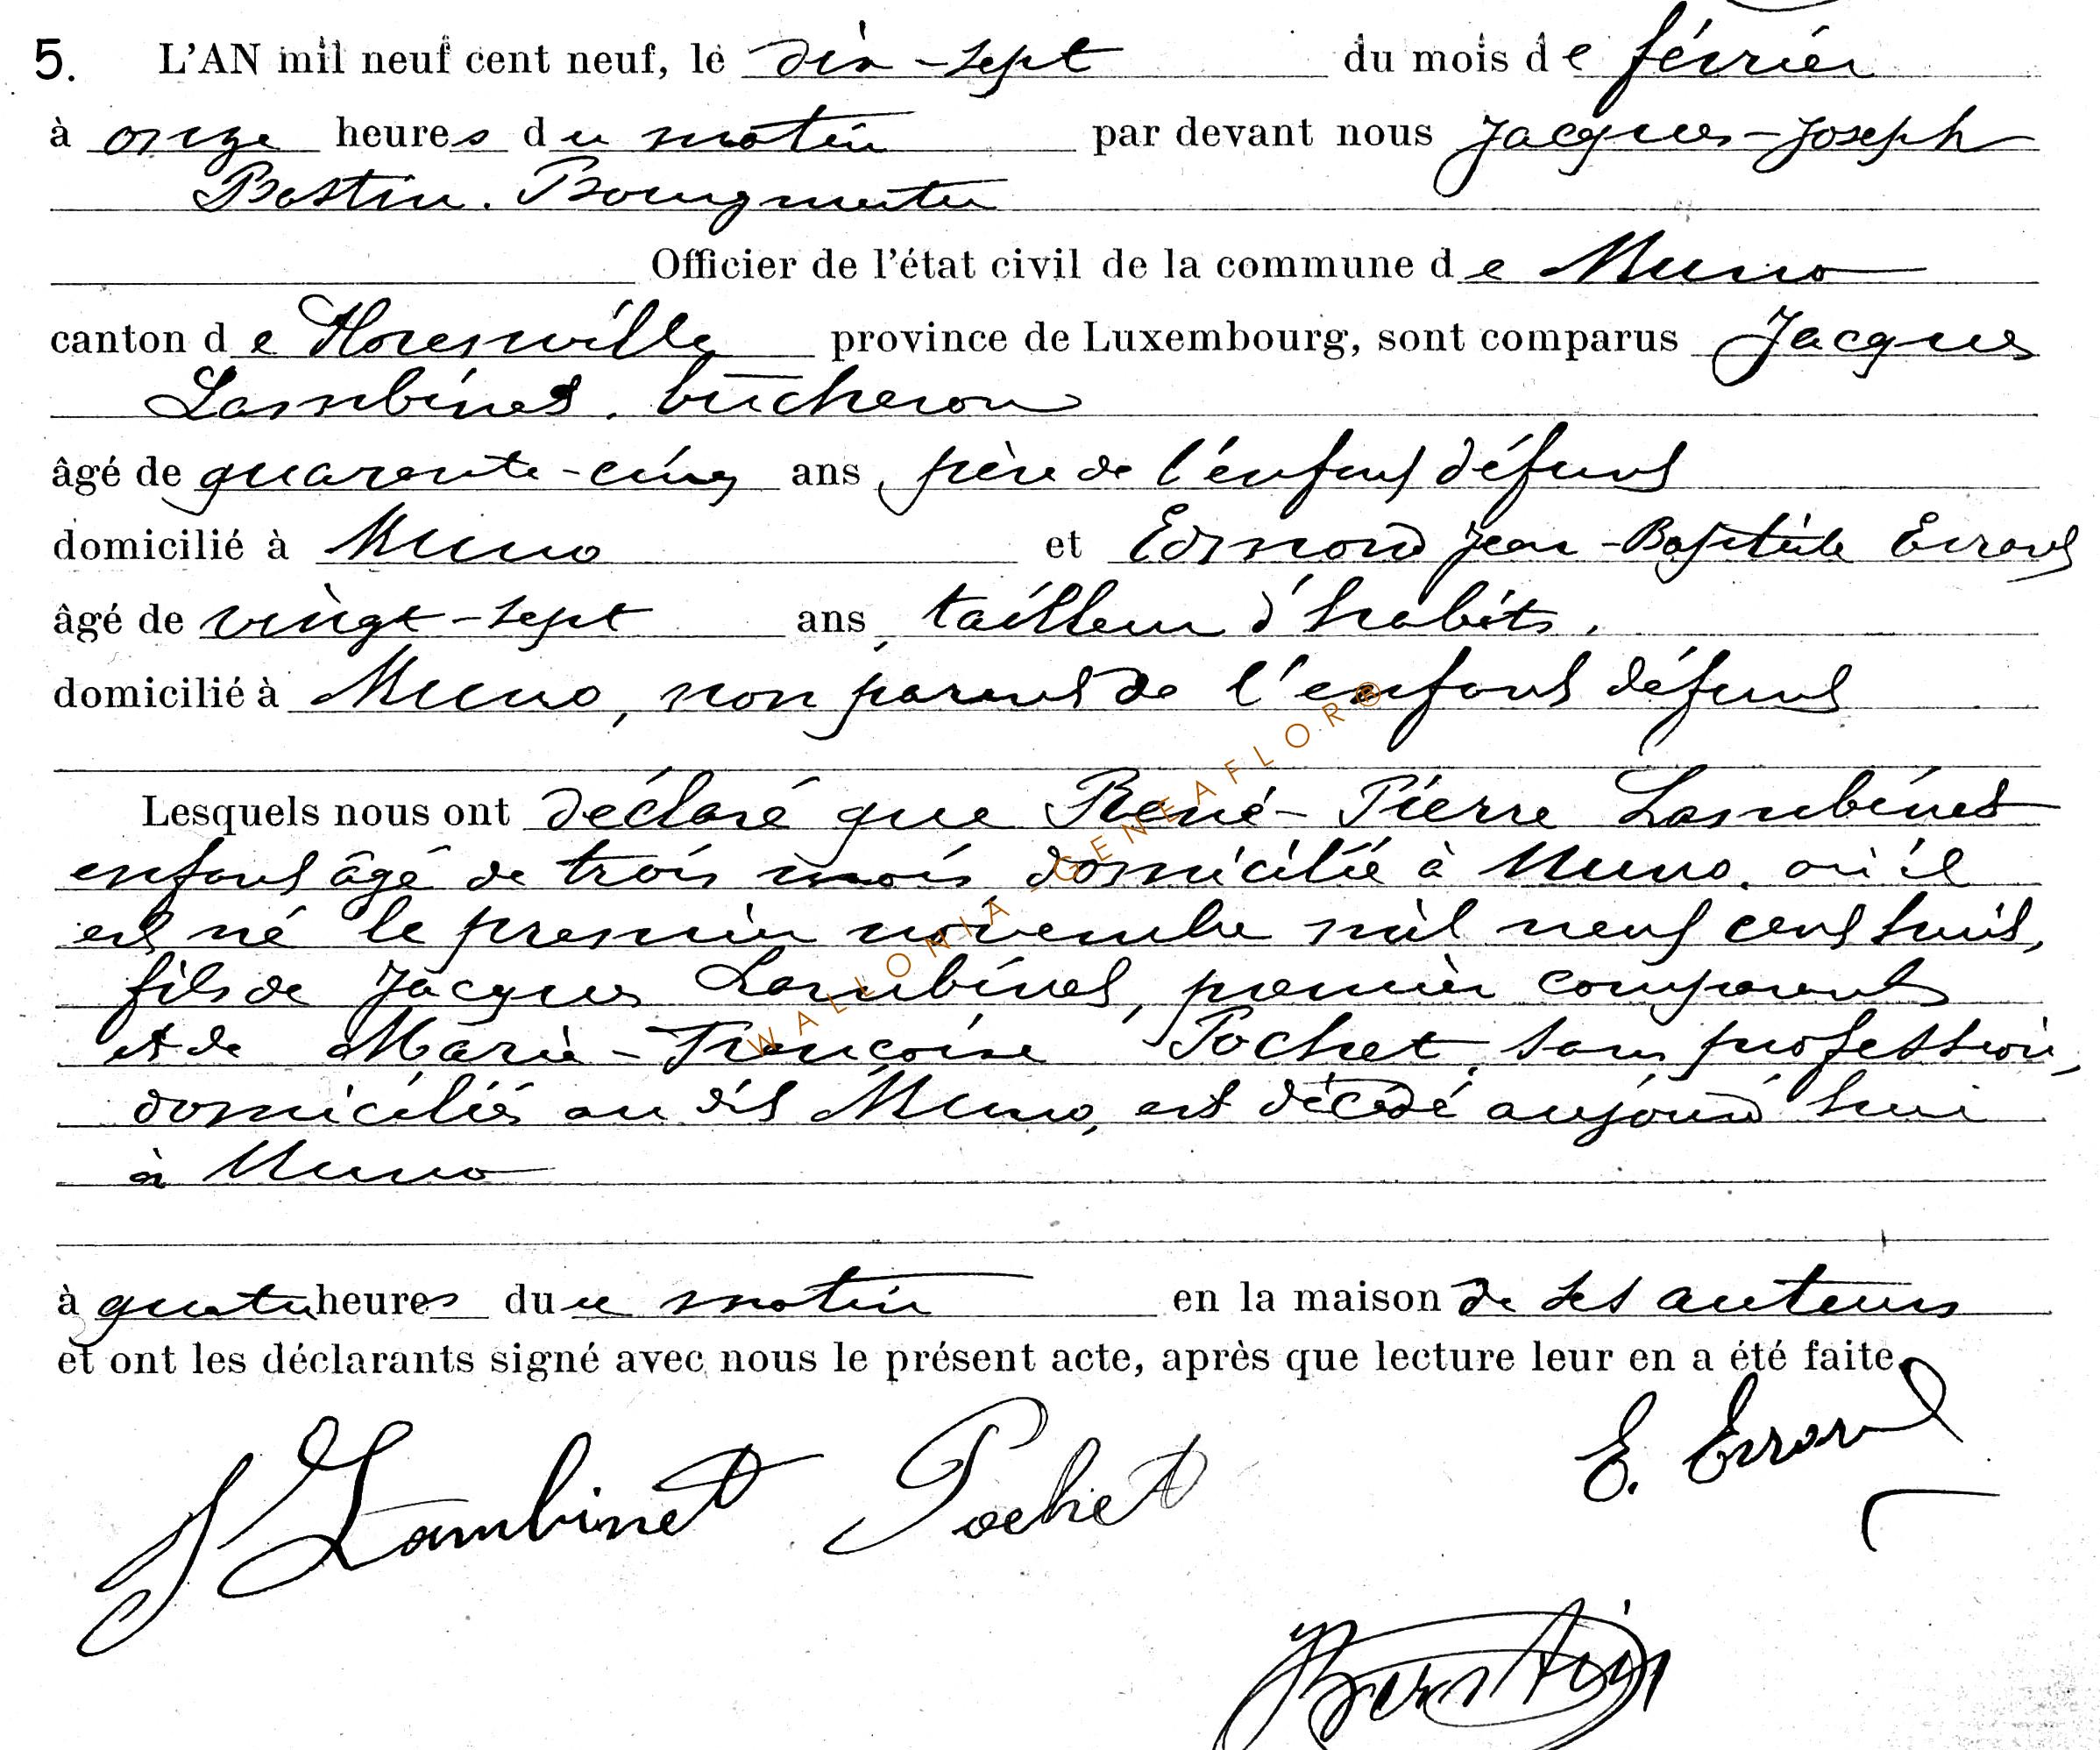 5. L'AN mil neuf cent neuf, le dix-sept du mois de février
à onze heures du matin par devant nous Jacques-Joseph
Bastin. Bourgmestre
Officier de l'état civil de la commune de Muno
canton de Florenville province de Luxembourg, sont comparus Jacques
Lambinet. bûcheron
âgé de quarante-cinq ans, père de l'enfant défunt
domicilié à Muno et Edmond Jean-Baptiste Errard
âgé de vingt-sept ans, tailleur d'habits,
domicilié à Muno, non parent de l'enfant défunt
Lesquels nous ont déclaré que René-Pierre Lambinet
enfant âgé de trois mois domicilié à Muno. où il
est né le premier novembre mil neuf cent huit,
fils de Jacques Lambinet, premier comparant
et de Marie-Françoise Pochet, sans profession,
domiciliés au dit Muno, est décédé aujourd'hui
à Muno
à quatre heures du u matin en la maison de ses auteurs
et ont les déclarants signé avec nous le présent acte, après que lecture leur en a été faite.
J Lambinet Pochet E. Errard
JBastin
WALLONIA GENEAFLOR®